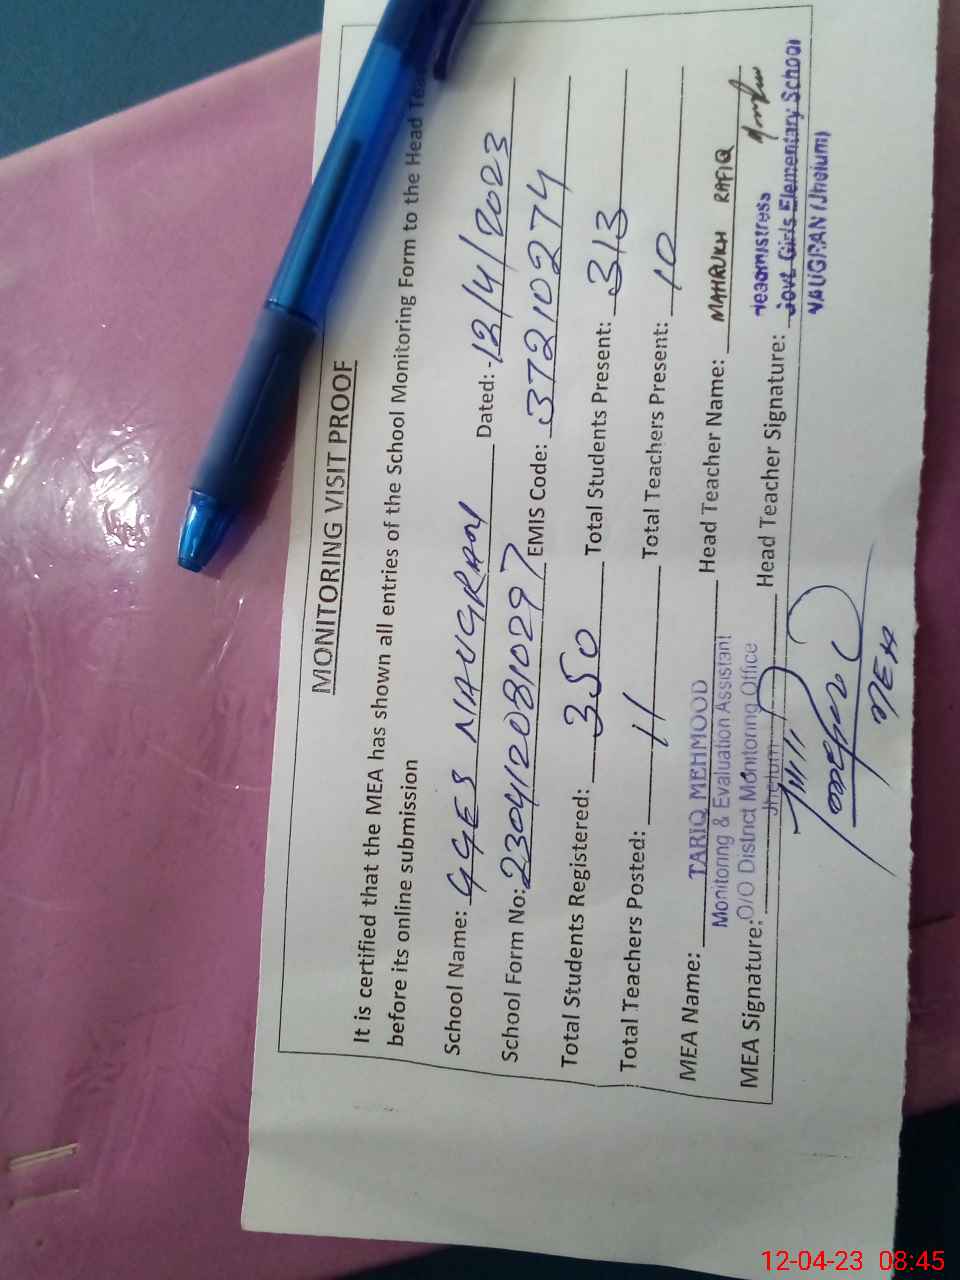 MONITORING VISIT PROOF
It is certified that the MEA has shown all entries of the School Monitoring Form to the Head
before its online submission
School Name: GGES NAUGRAN Dated: 12/4/2023
School Form No: 2304120810297 EMIS Code: 37210274
Total Students Registered: 350 Total Students Present: 313
Total Teachers Posted: 11 Total Teachers Present: 10
MEA Name: TARIQ MEHMOOD Head Teacher Name: MAHRUKH RAFIQ
Monitoring & Evaluation Assistant
O/O District Monitoring Office
Jhelum
Headmistress
MEA Signature: Head Teacher Signature: Govt Girls Elementary School
NAUGRAN (Jhelum)
12-04-23 08:45